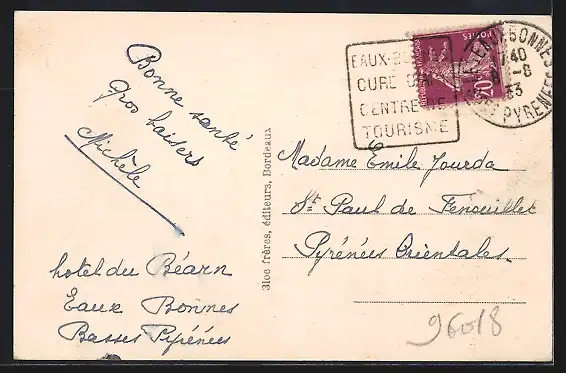 Bonne santé
Gros baisers
Michèle
hotel du Béarn
Eaux Bonnes
Basses Pyrénées
Bloc frères, éditeurs, Bordeaux
EAUX-B
CURE
CENTRE DE
TOURISME
POSTES
EAUX-BONNES
40
-8
33
PYRENEES
Madame Emile Jourda
St Paul de Fenouillet
Pyrénées Orientales
96018